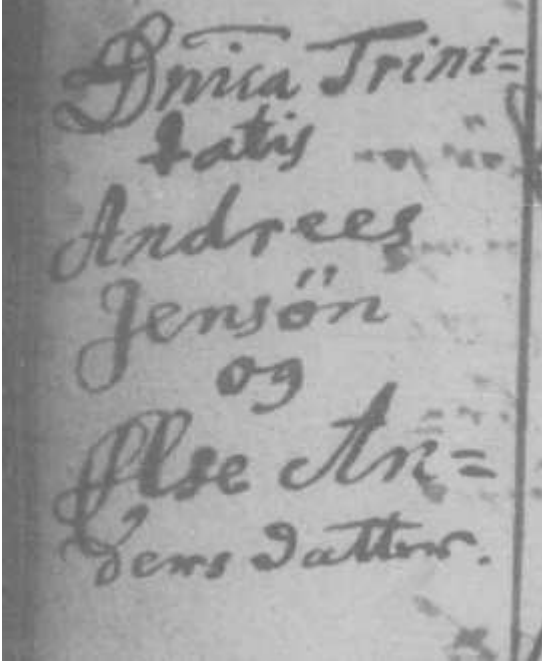 Dnica Trini=
tatis
Andrees
Jensön
og
Else An=
ders datter.